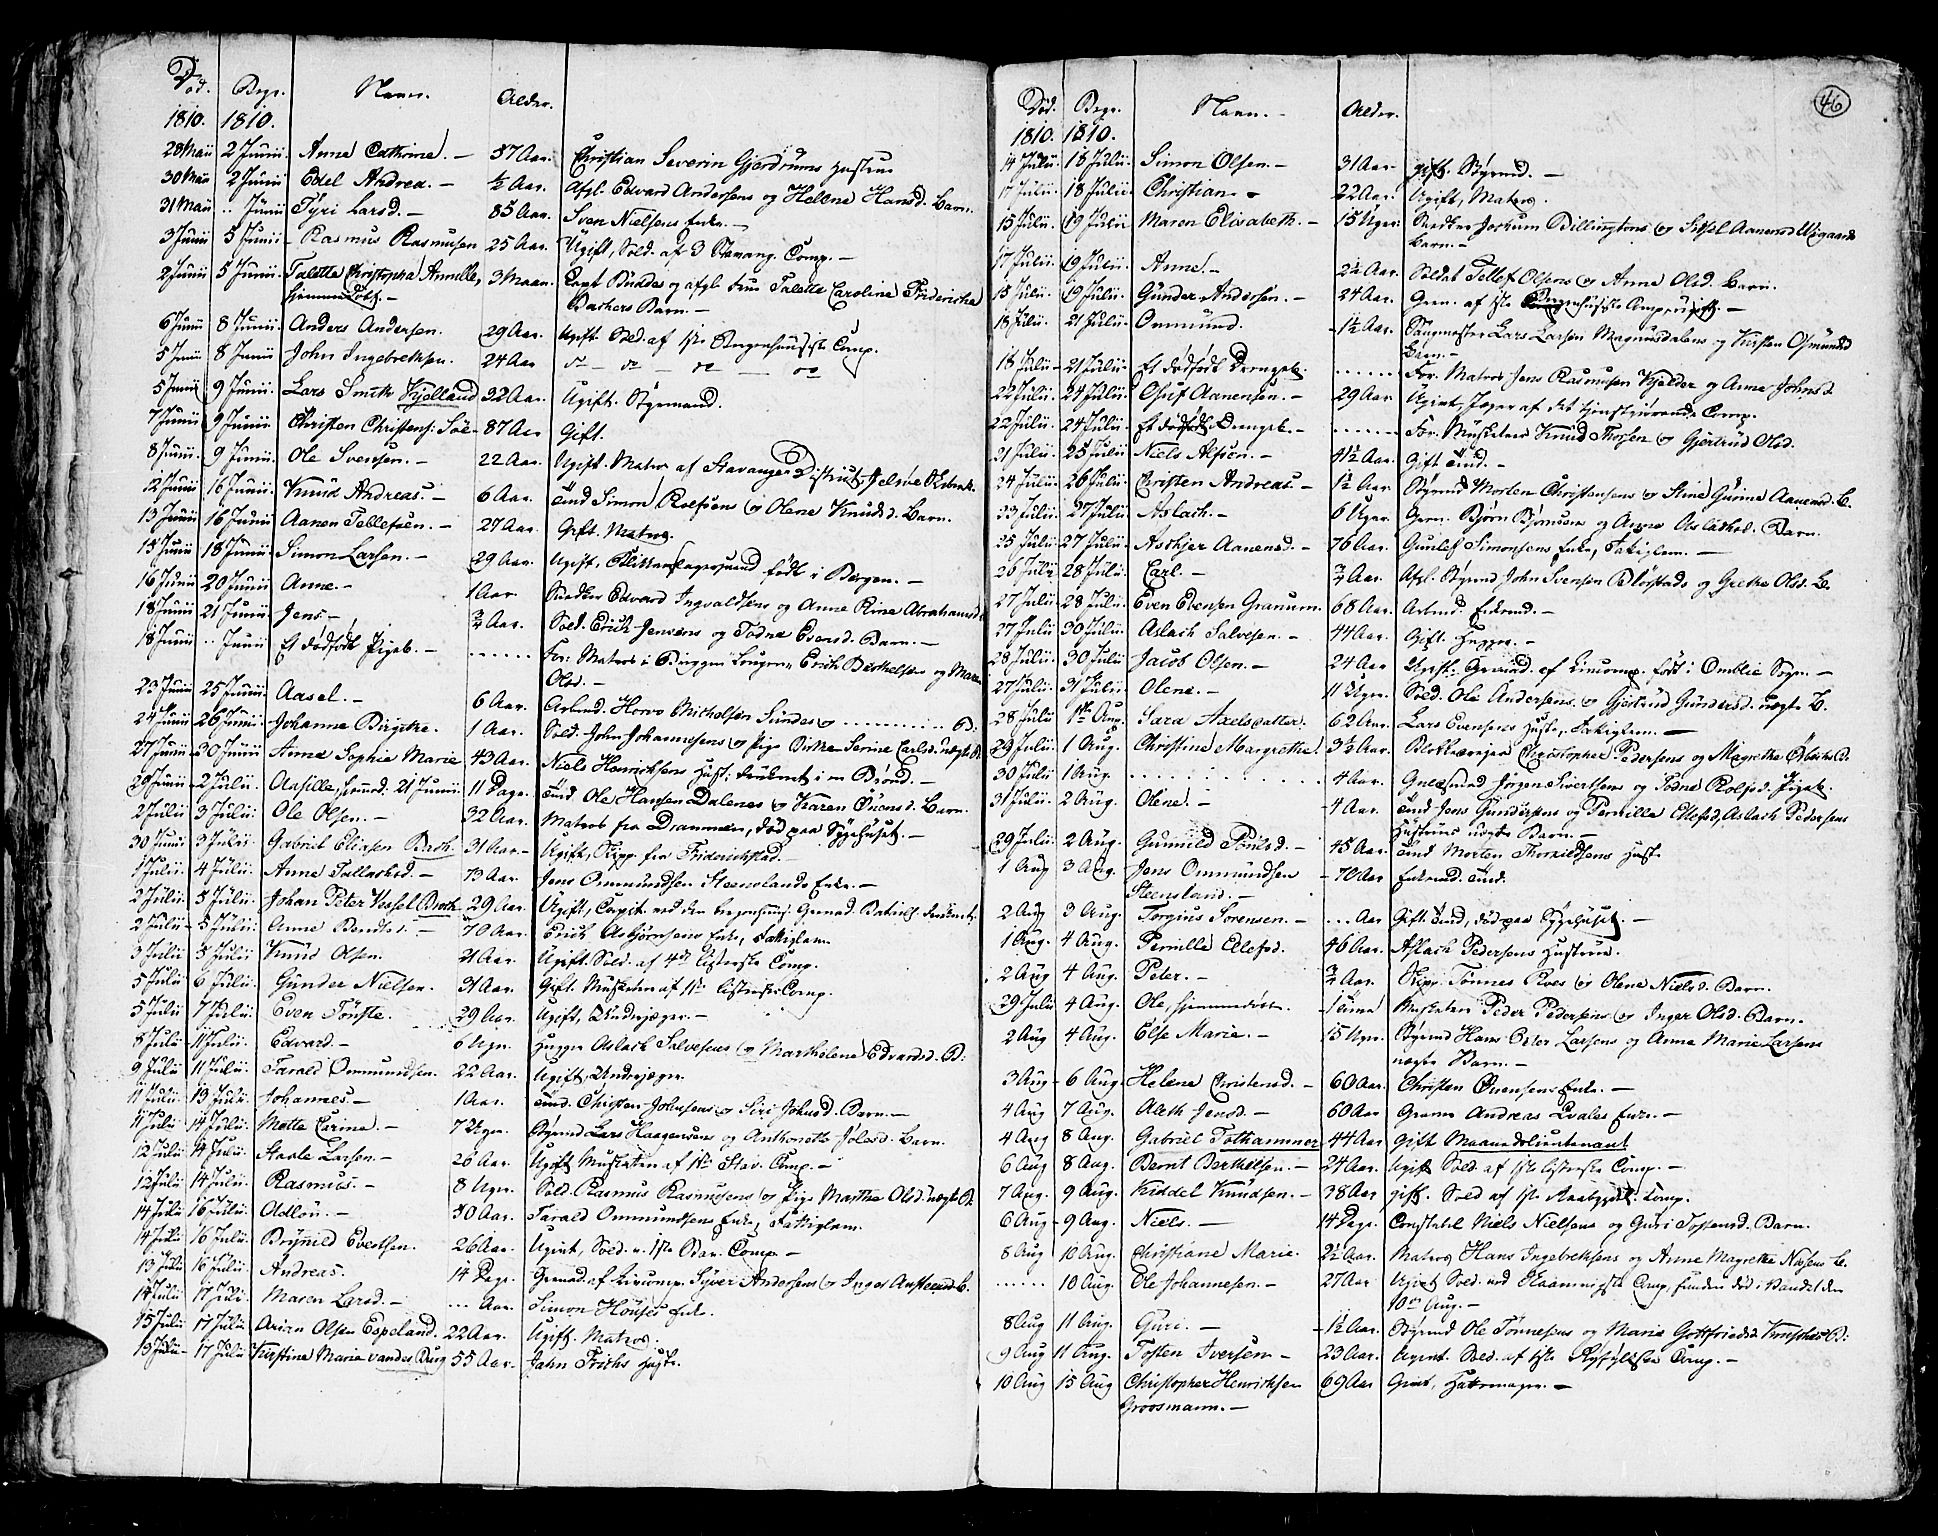 Død. Begr. Navn. Alder.
1810. 1810.
28 Maii 2 Junii Anne Cathrine. – 37 Aar. Christian Severin Gjerdrums Hustru
30 Maii 2 Junii Edel Andrea. – ½ Aar. Afgl. Edvard Andersens og Helene Hansd. Barn.
31 Maii .. Junii Tyri Larsd. – 85 Aar. Sven Nielsens Enke. –
3 Junii 5 Junii – Rasmus Rasmusen 25 Aar. Ugift, Sold. af 3 Stavang. Comp. –
2 Junii 5 Junii. Talette Christopha Annille, 3 Maan. Capt Buddes og afgl. Frue Talette Caroline Fridericha
hjemmedøbt. – Bachers Barn. –
6 Junii 8 Junii Anders Andersen. 29 Aar. Ugift. Sold. af 1ste Bergenhusiske Comp.
5 Junii 8 Junii John Ingebretsen. 24 Aar do – do – do – do
5 Junii 9 Junii Lars Smith Kjelland 22 Aar. Ugift. Styrmand.
7 Junii 9 Junii Christen Christens: Søe – 87 Aar Gift.
8 Junii 9 Junii Ole Svensen. – 22 Aar. Ugift. Matros af Stavanger District,
12 Junii 16 Junii Knud Andreas. – 6 Aar. Simon Rolfsens og Olene Knudsd. Barn.
13 Junii 16 Junii Aanen Tellefsen. – 27 Aar. Gift. Matros.
15 Junii 18 Junii Simon Larsen. – 29 Aar. Ugift, Blikkenslagersvend født i Bergen. –
16 Junii 20 Junii Anne – 1 Aar Snedker Edvard Ingvaldsens og Anne Rine Abrahamsd.
18 Junii 21 Junii Jens – ¾ Aar. Sold. Erich Jensens og Todne Evensd. Barn. –
18 Junii .. Junii Et dødfødt Pigeb. – ...... For: Matros i Briggen Lougen Erich Berthelsen og Maren
Olsd. –
23 Junii 25 Junii. Aasel. – 6 Aar. Arbmd. Sundes og .......... B.
24 Junii 26 Junii. Johanne Birgithe. 1 Aar. Sold. John Johannesens og Pige Birthe Serine Carlsd. uægte B.
27 Junii – 30 Junii Anne Sophie Marie 43 Aar. Niels Henrichsens Hust. druknet i en Brønd. –
29 Junii – 2 Julii. Aasille, hjemd. 21 Junii. 11 Dage. Ole Hansen Dalenes og Karen Ovensd. Barn
2 Julii 3 Julii. Ole Olsen. – 32 Aar. Matros fra Drammen, død paa Sygehuset. –
30 Junii 3 Julii. Gabriel Eliasen Bach. 31 Aar – Ugift, Skipp. fra Friderichstad. –
1 Julii. 4 Julii. Anne Tallachsd. – 73 Aar. Jens Ommundsen Steenslands Enke. –
2 Julii. 5 Julii. Johan Peter Vessel Broch 29 Aar. Ugift, Capit. ved den bergenhusi: Grenad. Batail: druknet.
2 Julii – 5 Julii. Anne Bentsd. – 70 Aar. Erich Asbjørnsens Enke, Fattiglem.
3 Julii 5 Julii Knud Olsen. 21 Aar. Ugift. Sold. af 4de Listerske Comp.
5 Julii 6 Julii. Gunder Nielsen. 31 Aar. Gift. Musketeer af 1ste Listerske Comp.
5 Julii 7 Julii. Even Tønste. 29 Aar. Ugift, Underjæger. –
8 Julii – 11 Julii. Edvard – 6 Uger. Hugger Aslach Salvesens og Martholene Edvardsd. B:
9 Julii 11 Julii. Tarald Ommundsen. 22 Aar. Ugift, Underjæger.
11 Julii. 13 Julii Johannes – 1 Aar. Christen Johnsens og Siri Johnsd. Barn. –
11 Julii 14 Julii. Mette Carine – 7 Uger. Styrmd Lars Haagensens og Anthonette Jolesd. Barn
12 Julii 14 Julii. Staale Larsen – 26 Aar. Ugift Musketeer af 1ste Stav. Comp. –
12 Julii 14 Julii. Rasmus. – 8 Uger. Sold. Rasmus Rasmusens og Pige Marthe Olsd. uægte B.
14 Julii 16 Julii. Oldlou. – 50 Aar. Tarald Ommundsens Enke, Fattiglem
14 Julii 16 Julii Brynild Evertsen. 26 Aar. Ugift, Sold. v. 1ste Stav. Comp –
13 Julii 16 Julii Andreas. 14 Dage. Grenad. af Livcomp. Syver Andersens og Inges Austeensd. B.
14 Julii 17 Julii. Maren Larsd. – ... Aar. Simon Houses Enke.
15 Julii 17 Julii Arian Olsen Espeland. 22 Aar. Ugift. Matros.
15 Julii – 17 Julii Kirstine Marie vandes Burg 55 Aar. Jahn Frichs Hustr.
46
Død. Begr. Navn. – Alder.
1810. 1810.
14 Julii. 18 Julii. Simon Olsen. – 31 Aar gift. Styrmd. –
17 Julii. 18 Julii. Christian – 22 Aar. Ugift, Matros.
15 Julii. 19 Julii Maren Elisabeth. – 15 Uger. Snedker Jochum Billingtons og Sitsel Aanensd Ugaards
Barn. –
17 Julii. 19 Julii. Anne – 2½ Aar. Soldat Tellef Olsens og Anne Olsd. Barn.
15 Julii. 19 Julii. Gunder Andersen. – 24 Aar. Gren. af 1ste Bergenhusiske Comp. ugift. –
18 Julii. 21 Julii. Ommund. – 1½ Aar. Lars Larsen Magnusdalens og Kirsten Osmundsd
Barn. –
18 Julii – 21 Julii – Et dødfødt Drengeb. ...... For. Matros Jens Rasmusen Kjelder og Anne Johnsd.
22 Julii. 24 Julii. Oluf Aanensen. – 29 Aar Ugift, Jæger af det tjenstgjørende Comp.
22 Julii. 24 Julii. Et dødfødt Drengeb. – ...... For. Musketeer Knud Thorsen og Gjertrud Olsd.
21 Julii. 25 Julii Niels Alfsen. – 41½ Aar. Gift –
24 Julii. 26 Julii. Christen Andreas – 1½ Aar. Styrmd Morten Christensens og Stine Gurine Aanensd. B.
23 Julii. 27 Julii Aslach. – 6 Uger. Gren. Bjørn Bjørnsens og Anne Aslaksd. Barn.
25 Julii. 27 Julii. Aschjer Aanensd. – 76 Aar. Gunlef Simonsens Enke, Fattiglem. –
26 Julii 28 Julii. Carl. – ¾ Aar. Afgl. Styrmd John Svensen Blørstads og Grethe Olsd. B.
27 Julii – 28 Julii. Even Evensen Granum 68 Aar. Arbmd. Enkemd. –
27 Julii 30 Julii Aslach Salvesen. – 44 Aar. Gift. Hugger. –
28 Julii 30 Julii Jacob Olsen. – 24 Aar Ugift. Grenad. af Livcomp. født i Omblie Sogn. –
27 Julii. 31 Julii. Olene. – 11 Uger. Sold. Ole Andersens og Gjertrud Gundersd. uægte B.
28 Julii 1ste Aug. Sara Axelsdatter. 62 Aar. Lars Evensens Hustr. Fattiglem. –
29 Julii. 1 Aug. Christine Margrethe. 3½ Aar. Christopher Pedersens og Magrethe B.
30 Julii 1 Aug. ........ 4 Aar. Jørgen Sivertsens og Todne Rolfsd. Pigeb.
31 Julii. 2 Aug. Olene. – – 4 Aar. Jens Gundersens og Pernille Ellefsd, Aslach Pedersens
Hustrues uægte Barn. –
29 Julii 2 Aug. Gunnild Tønesd. – 45 Aar. Morten Thorkildsens Hust.
1 Aug 3 Aug. Jens Ommundsen – 70 Aar Enkemd.
Steensland. –
2 Aug 3 Aug. Torgius Sørensen. – ... Aar Gift død paa Sygehuset. –
1 Aug. 4 Aug. Pernille Ellefsd. 46 Aar. Aslach Pedersens Hustrue.
2 Aug 4 Aug. Peter. – ¾ Aar. Skipp. Tønnes Rves og Olene Nielsd. Barn.
29 Julii 4 Aug. Ole, hjemmedøbt. – Musketeer Peder Pedersens og Inger Olsd. Barn.
2 Aug 4 Aug. Else Marie. – 15 Uger. Styrmd Hans Peter Larsens og Anne Marie Larsens
uægte Barn. –
3 Aug – 6 Aug. Helene Christensd. – 60 Aar. Christen Ovensens Enke. –
4 Aug 7 Aug. Aleth Jensd. – 60 Aar Andreas Evales Enke. –
4 Aug 8 Aug. Gabriel Tothammer 44 Aar Gift Maanedslieutenant
6 Aug 8 Aug. Bernt Berthelsen. – 24 Aar. Ugift Sold. af 1ste Listerske Comp. –
7 Aug. 9 Aug. Kiddel Knudsen. – 38 Aar gift. Sold af 1ste Raabygdel. Comp.
6 Aug – 9 Aug. Niels. – 14 Dage. Constabel Niels Nielsens og Guri Tostensd. Barn.
8 Aug 10 Aug. Christiane Marie. 2½ Aar. Matros Hans Ingebrethsens og Anne Magrethe Nielsens B.
...... 10 Aug. Ole Johannesen. – 27 Aar Ugift Sold. ved Comp, funden død i Vandet den
10de Aug. –
8 Aug 11 Aug. Guri – – 1½ Aar. Styrmd Ole Tønnesens og Marie Gottfriedsd. B:
9 Aug 11 Aug. Tosten Iversen – 23 Aar. Ugift. Sold. af 1ste Ryfylkske Comp. –
10 Aug 15 Aug Christopher Henrichsen 69 Aar Gift, Hattemager. –
Groosmann. –